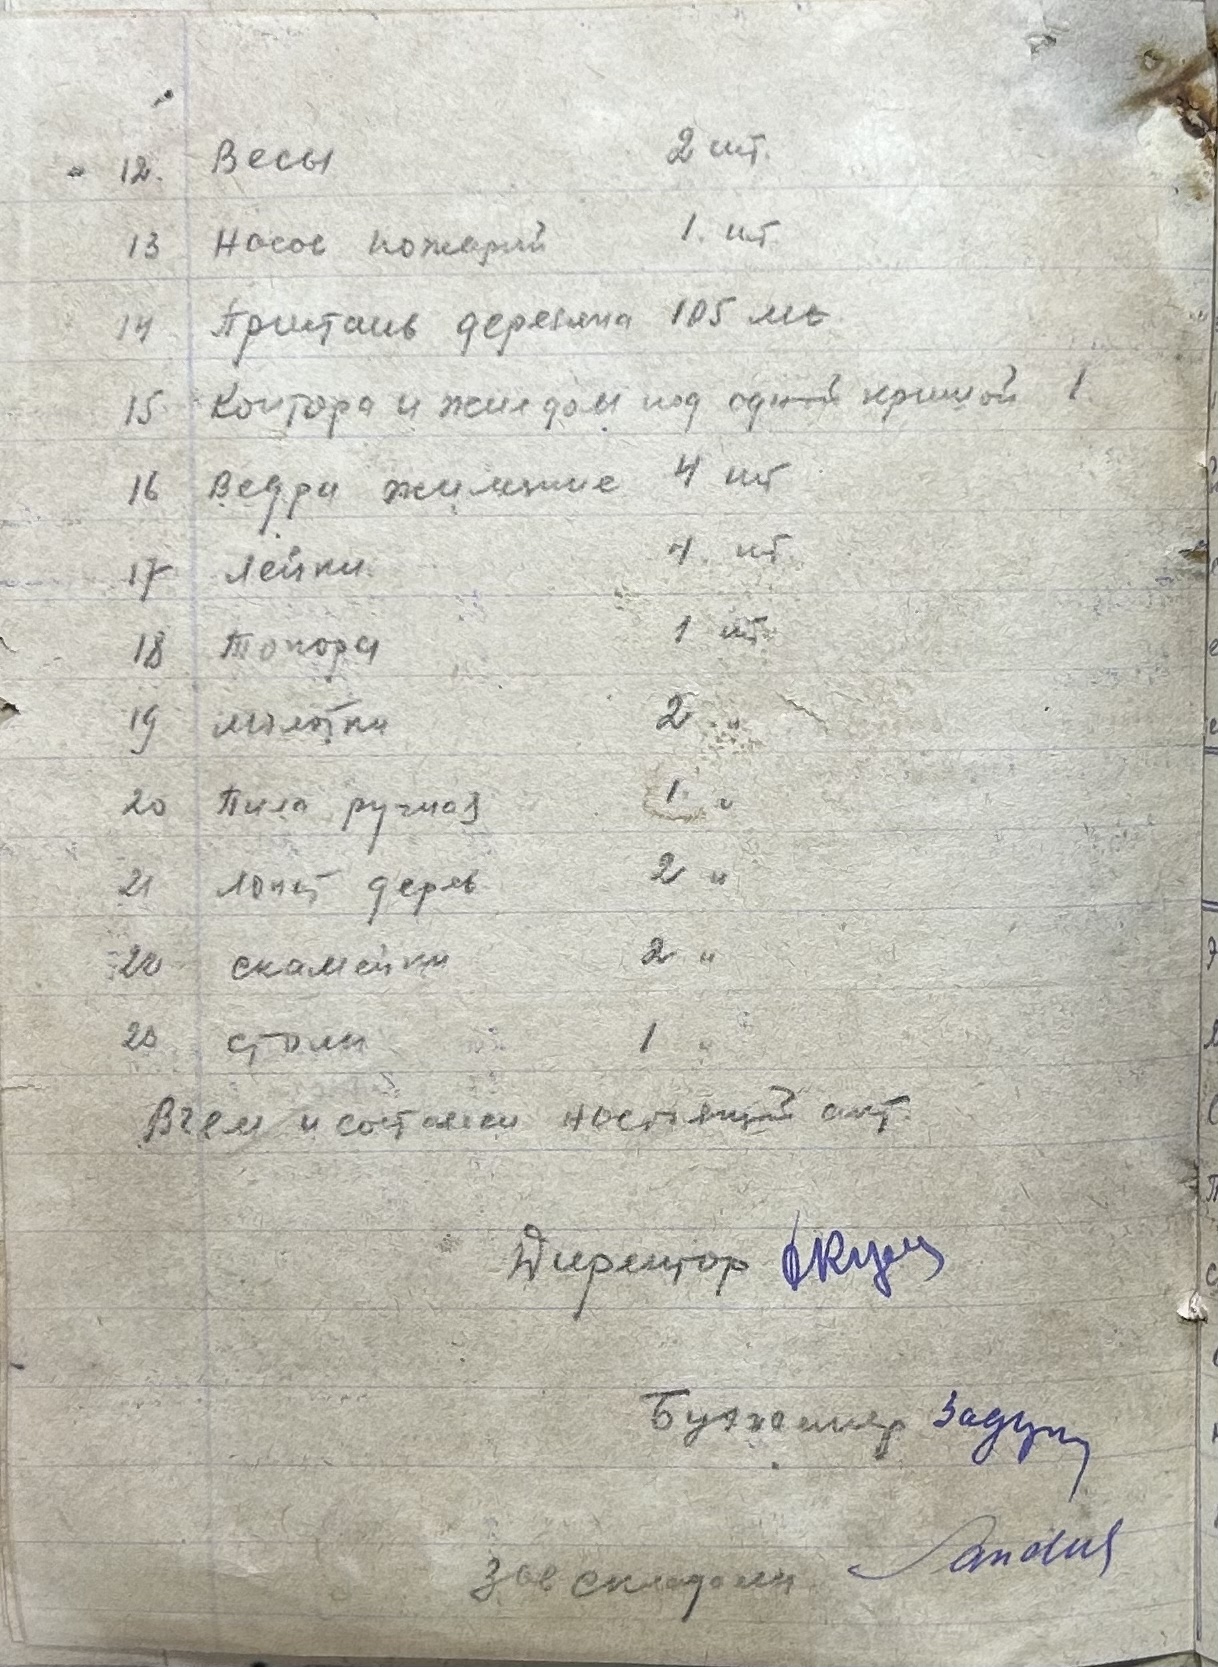 12. Весы 2 шт.
13 Насос пожарий 1. шт
14 Пристань деревяна 105 м²
15 Контора и жилдом под одной кришой 1
16 Ведри жилезние 4 шт
17 Лейки 4. шт.
18 Топора 1 шт.
19 молотки 2 "
20 Пила ручная 1. "
21 Лопат дерев 2 "
20 скамейки 2 "
20 столи 1 "
Вчем и состалси настоящий акт.
Директор
Буххалтер Задун
Зав складами